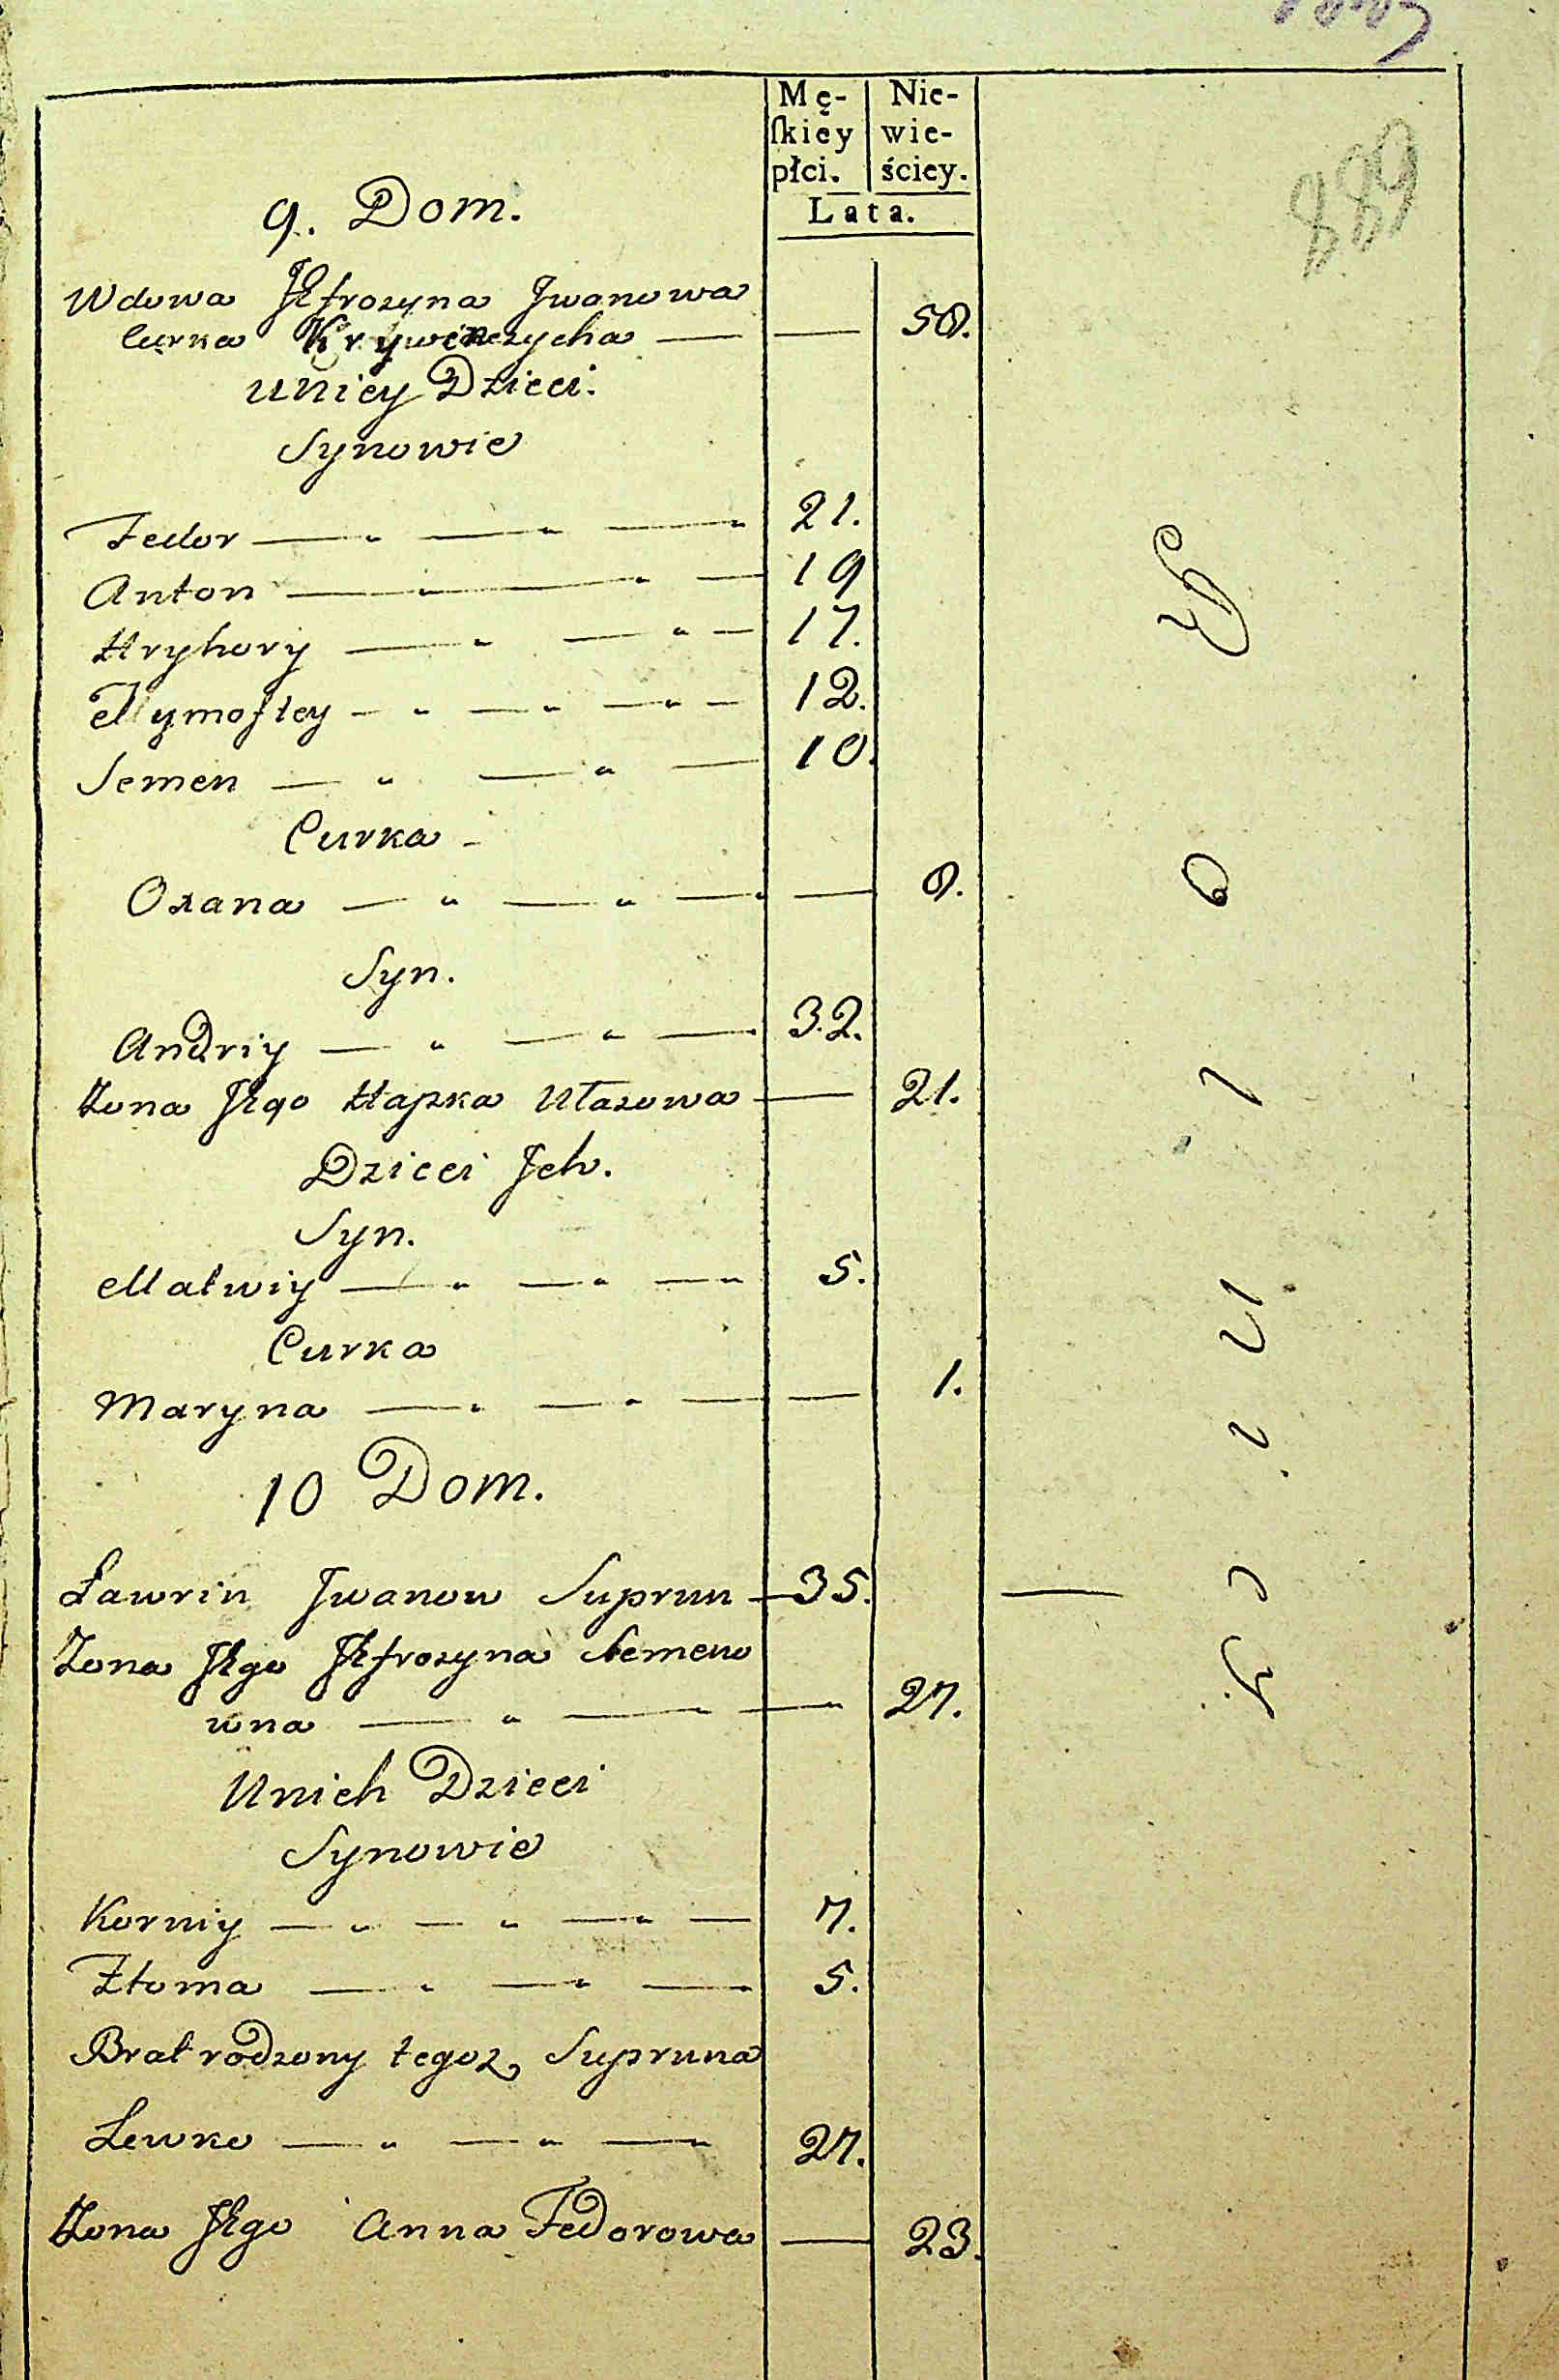 Mę- Nie-
ſkiey wie-
płci. ściey.
Lata.
889
9. Dom.
Wdowa Jefrozyna Jwanowa
Curka Krywczezycha — — 58.
u Niey Dzieci.
Synowie
Fedor — " — " — " 21.
Anton — " — " — 19
Hryhory — " — " — 17.
Tymoftey — " — " — " — 12.
Semen — " — " — 10.
Curka -
Oxana — " — " — — 8.
Syn.
Andriy — " — " — 32.
Zona Jego Hapka Własowa — 21.
Dzieci Jch.
Syn.
Matwiy — " — " — " 5.
Curka
Maryna — " — " — — 1.
10 Dom.
Ławrin Jwanow Suprun — 35. —
Zona Jego Jefrozyna Semeno
wna — " — " — " 27.
U nich Dzieci
Synowie
Korniy — " — " — " — 7.
Htoma — " — " — 5.
Brat rodzony tegoz Supruna
Lewko — " — " — 27.
Zona Jego Anna Fedorowa — 23.